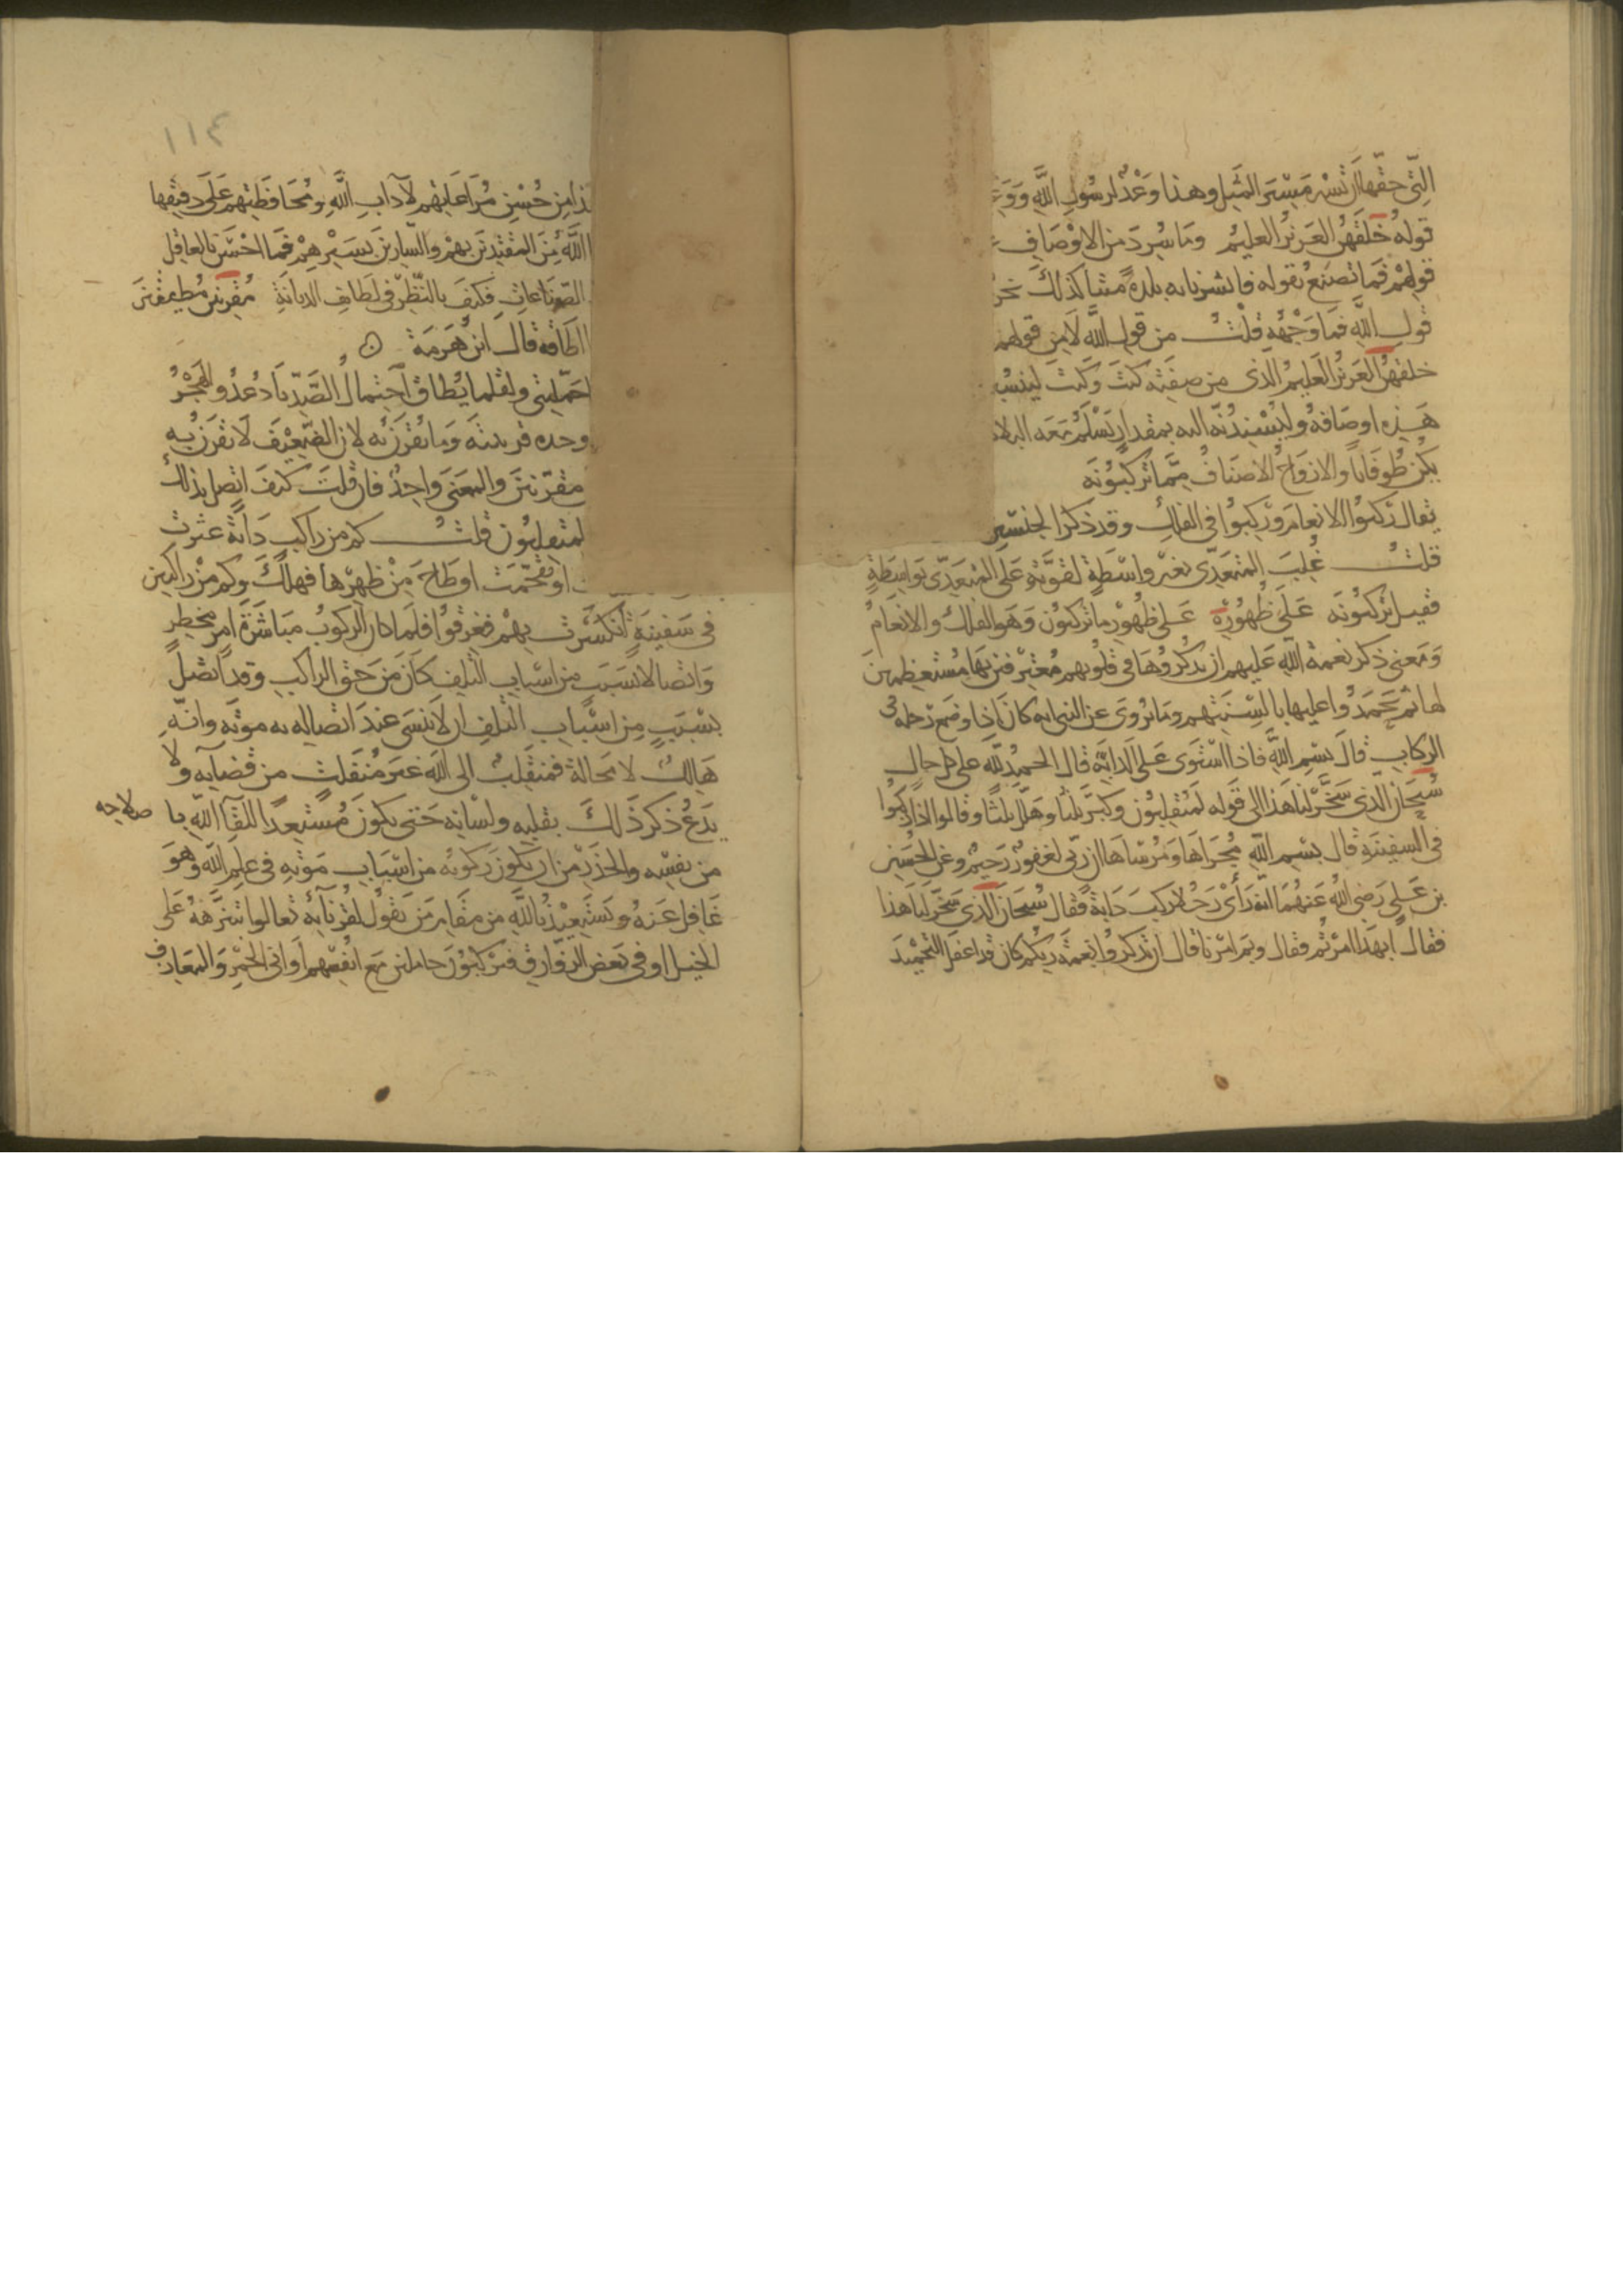 التي حقها ان تسير مسير المثل وهذا وعد لرسول الله
قوله خلقهن العزيز العليم وما سرد من الاوصاف
قولهم فما تصنع بقوله فانشرنا به بلدة ميتا كذلك
قول الله فما وجهه قلت من قول الله لا من قولهم
خلقهن العزيز العليم الذي من صفته كيت وكيت لينسبن
هذه اوصافه وليسندنه اليه بمقدار يسلم معه البلاد
يكن طوفانا والازواج الاصناف مما تركبونه
يقال ركبوا الانعام وركبوا في الفلك وقد ذكر الجنسين
قلت غلب المتعدي بغير واسطة لقوته على المتعدي بواسطة
فقيل تركبونه على ظهوره على ظهور ما تركبون وهو الفلك والانعام
ومعنى ذكر نعمة الله عليهم ان يذكروها في قلوبهم معترفين بها مستعظمين
لها ثم يحمدوا عليها بالسنتهم وما يروى عن النبي انه كان اذا وضع رجله في
الركاب قال بسم الله فاذا استوى على الدابة قال الحمد لله على كل حال
سبحان الذي سخر لنا هذا الى قوله لمنقلبون وكبر ثلثا وهلل ثلثا وقالوا اذا ركبوا
في السفينة قال بسم الله مجراها ومرساها ان ربي لغفور رحيم وعن الحسين
بن علي رضي الله عنهما انه رأى رجلا ركب دابة فقال سبحان الذي سخر لنا هذا
فقال ابهذا امرتم فقال وبم امرنا قال ان تذكروا نعمة ربكم كان قد اغفل التحميد
١١٤
ذا من حسن مراعاتهم لآداب الله ومحافظتهم على دقيقها
الله من المقتدين بهم والسايرين بسيرهم فما احسن بالعاقل
الصناعات فكيف بالنظر في لطايف الديانة مقرنين مطيقين
اطاقه قال ابن هرمة
احملتني ولقلما يطاق احتمال الصد يا دعد والهجر
وحده قرينته وما يقرن به لان الضعيف لا تقرن به
مقرنين والمعنى واحد فان قلت كيف اتصل بذلك
لمنقلبون قلت كم من راكب دابة عثرت
او تقحمت او طاح من ظهرها فهلك وكم من راكبين
في سفينة انكسرت بهم فغرقوا فلما كان الركوب مباشرة امر مخطر
واتصالا بسبب من اسباب التلف كان من حق الراكب وقد اتصل
بسبب من اسباب التلف ان لا ينسى عند اتصاله به موته وانه
هالك لا محالة فمنقلب الى الله غير منفلت من قضايه ولا
يدع ذكر ذلك بقلبه ولسانه حتى يكون مستعدا للقآ الله با صلاحه
من نفسه والحذر من ان يكون ركوبه من اسباب موته في علم الله وهو
غافل عنه ونستعيذ بالله من مقام من يقول لقرنآيه تعالوا نتنزه على
الخيل او في بعض الزوارق فيركبون حاملين مع انفسهم اواني الخمر والمعازف